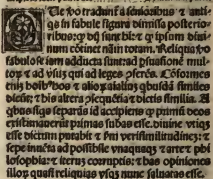 Ue vo tradunt a senioribus ⁊ anti-
qs in fabule figura dimissa posterio-
ribus: ꝙ dij sunt hi: ⁊ ꝙ ipsum diui-
num cõtinet naturã totam. Reliqua vo
fabulose iam adducta sunt: ad psuationẽ mul-
toꝝ ⁊ ad vsuz qui ad leges
eni ⁊ alioꝝ aialiũ qbusdã similes
dicũt: ⁊ his altera ⁊ dictis similia. A
qbus siqs separãs id accipiens ꝙ primũ deos
existimauerũt primas subas esse: diuine vtiqꝫ
esse dictum putabit ⁊ ẽm verisimilitudinez: ⁊
sepe inuẽta ad possibile vnaquaqꝫ ⁊ arte ⁊ phi
losophia: ⁊ iteruꝫ corruptis: ⁊ has opiniones
illoꝝ quasi reliquias vsqꝫ nunc saluatas esse.